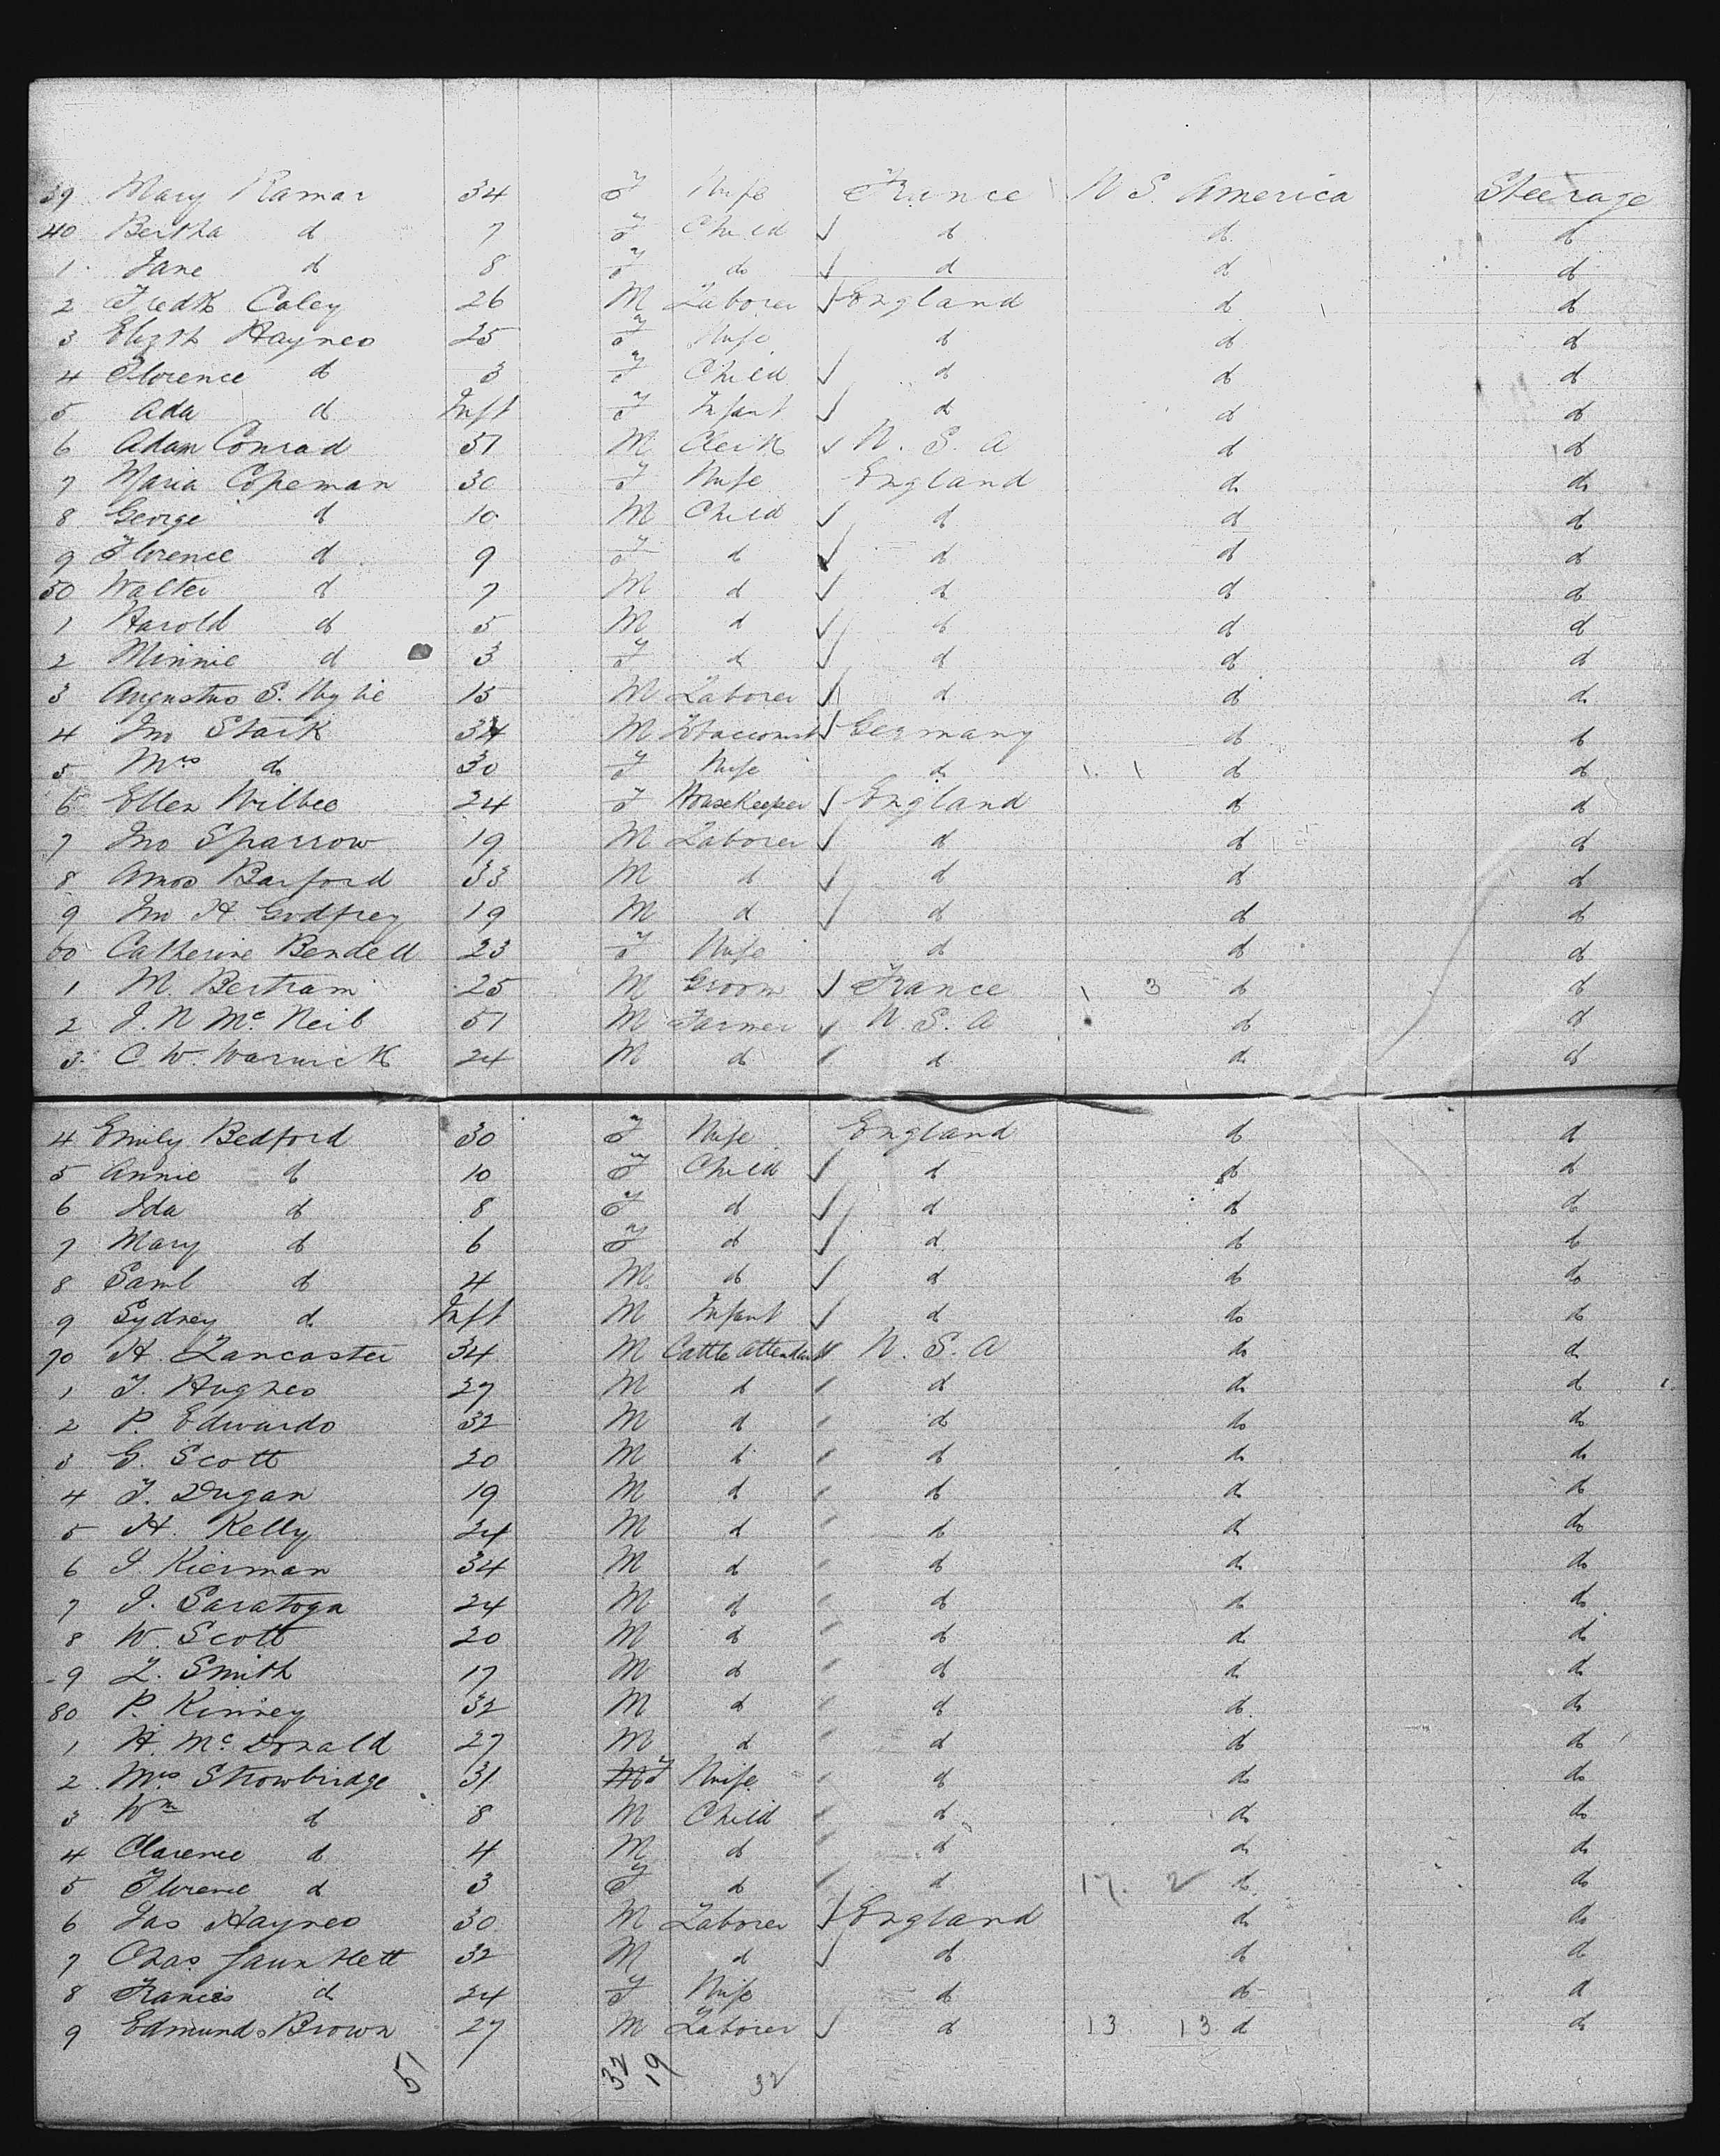 39 Mary Ramar 34 F Wife France U S. America Steerage
40 Bertha do 7 F Child ✓ do do do
1 Jane do 8 F do ✓ do do do
2 Fredk Caley 26 M Laborer ✓ England do do
3 Elizth Haynes 25 F Wife do do do
4 Florence do 3 F Child ✓ do do do
5 Ada do Inft F Infant ✓ do do do
6 Adam Conrad 51 M Clerk ✓ U. S. A do do
7 Maria Copeman 30 F Wife England do do
8 George do 10 M Child ✓ do do do
9 Florence do 9 F do ✓ do do do
50 Walter do 7 M do ✓ do do do
1 Harold do 5 M do ✓ do do do
2 Minnie do 3 F do ✓ do do do
3 Augustus S. Wylie 15 M Laborer ✓ do do do
4 Jno Stark 34 M ✓ Germany do do
5 Mrs do 30 F Wife do 1. 1 do do
6 Ellen Wilbee 24 F HouseKeeper ✓ England do do
7 Jno Sparrow 19 M Laborer ✓ do do do
8 Amos Barford 33 M do ✓ do do do
9 Jno H Godfrey 19 M do ✓ do do do
60 Catherine Bendell 23 F Wife do do do
1 M. Bertram 25 M Groom ✓ France 1 3 do do
2 J. N Mc Neil 51 M Farmer ✓ U. S. A do do
3 C. W. Warwick 24 M do do do do
4 Emily Bedford 30 F Wife England do do
5 Annie do 10 F Child ✓ do do do
6 Ida do 8 F do ✓ do do do
7 Mary do 6 F do ✓ do do do
8 Saml do 4 M do ✓ do do do
9 Sydney do Inft M Infant ✓ do do do
70 H. Lancaster 34 M Cattle attendant U. S. A do do
1 T. Hughes 27 M do do do do
2 P. Edwards 32 M do do do do
3 G. Scott 20 M do do do do
4 T. Dugan 19 M do do do do
5 H. Kelly 24 M do do do do
6 J. Kierman 34 M do do do do
7 J. Saratoga 24 M do do do do
8 W. Scott 20 M do do do do
9 L. Smith 17 M do do do do
80 P. Kinney 32 M do do do do
1 H. Mc Donald 27 M do do do do
2 Mrs Strowbridge 31 F Wife do do do
3 Wm do 8 M Child do do do
4 Clarence do 4 M do do do do
5 Florence do 3 F do do 17. 2 do do
6 Jas Haynes 30 M Laborer ✓ England do do
7 Chas Gauntlett 32 M do ✓ do do do
8 Francis do 24 F Wife do do do
9 Edmund Brown 27 M Laborer ✓ do 13. 13 do do
51 32 19 32